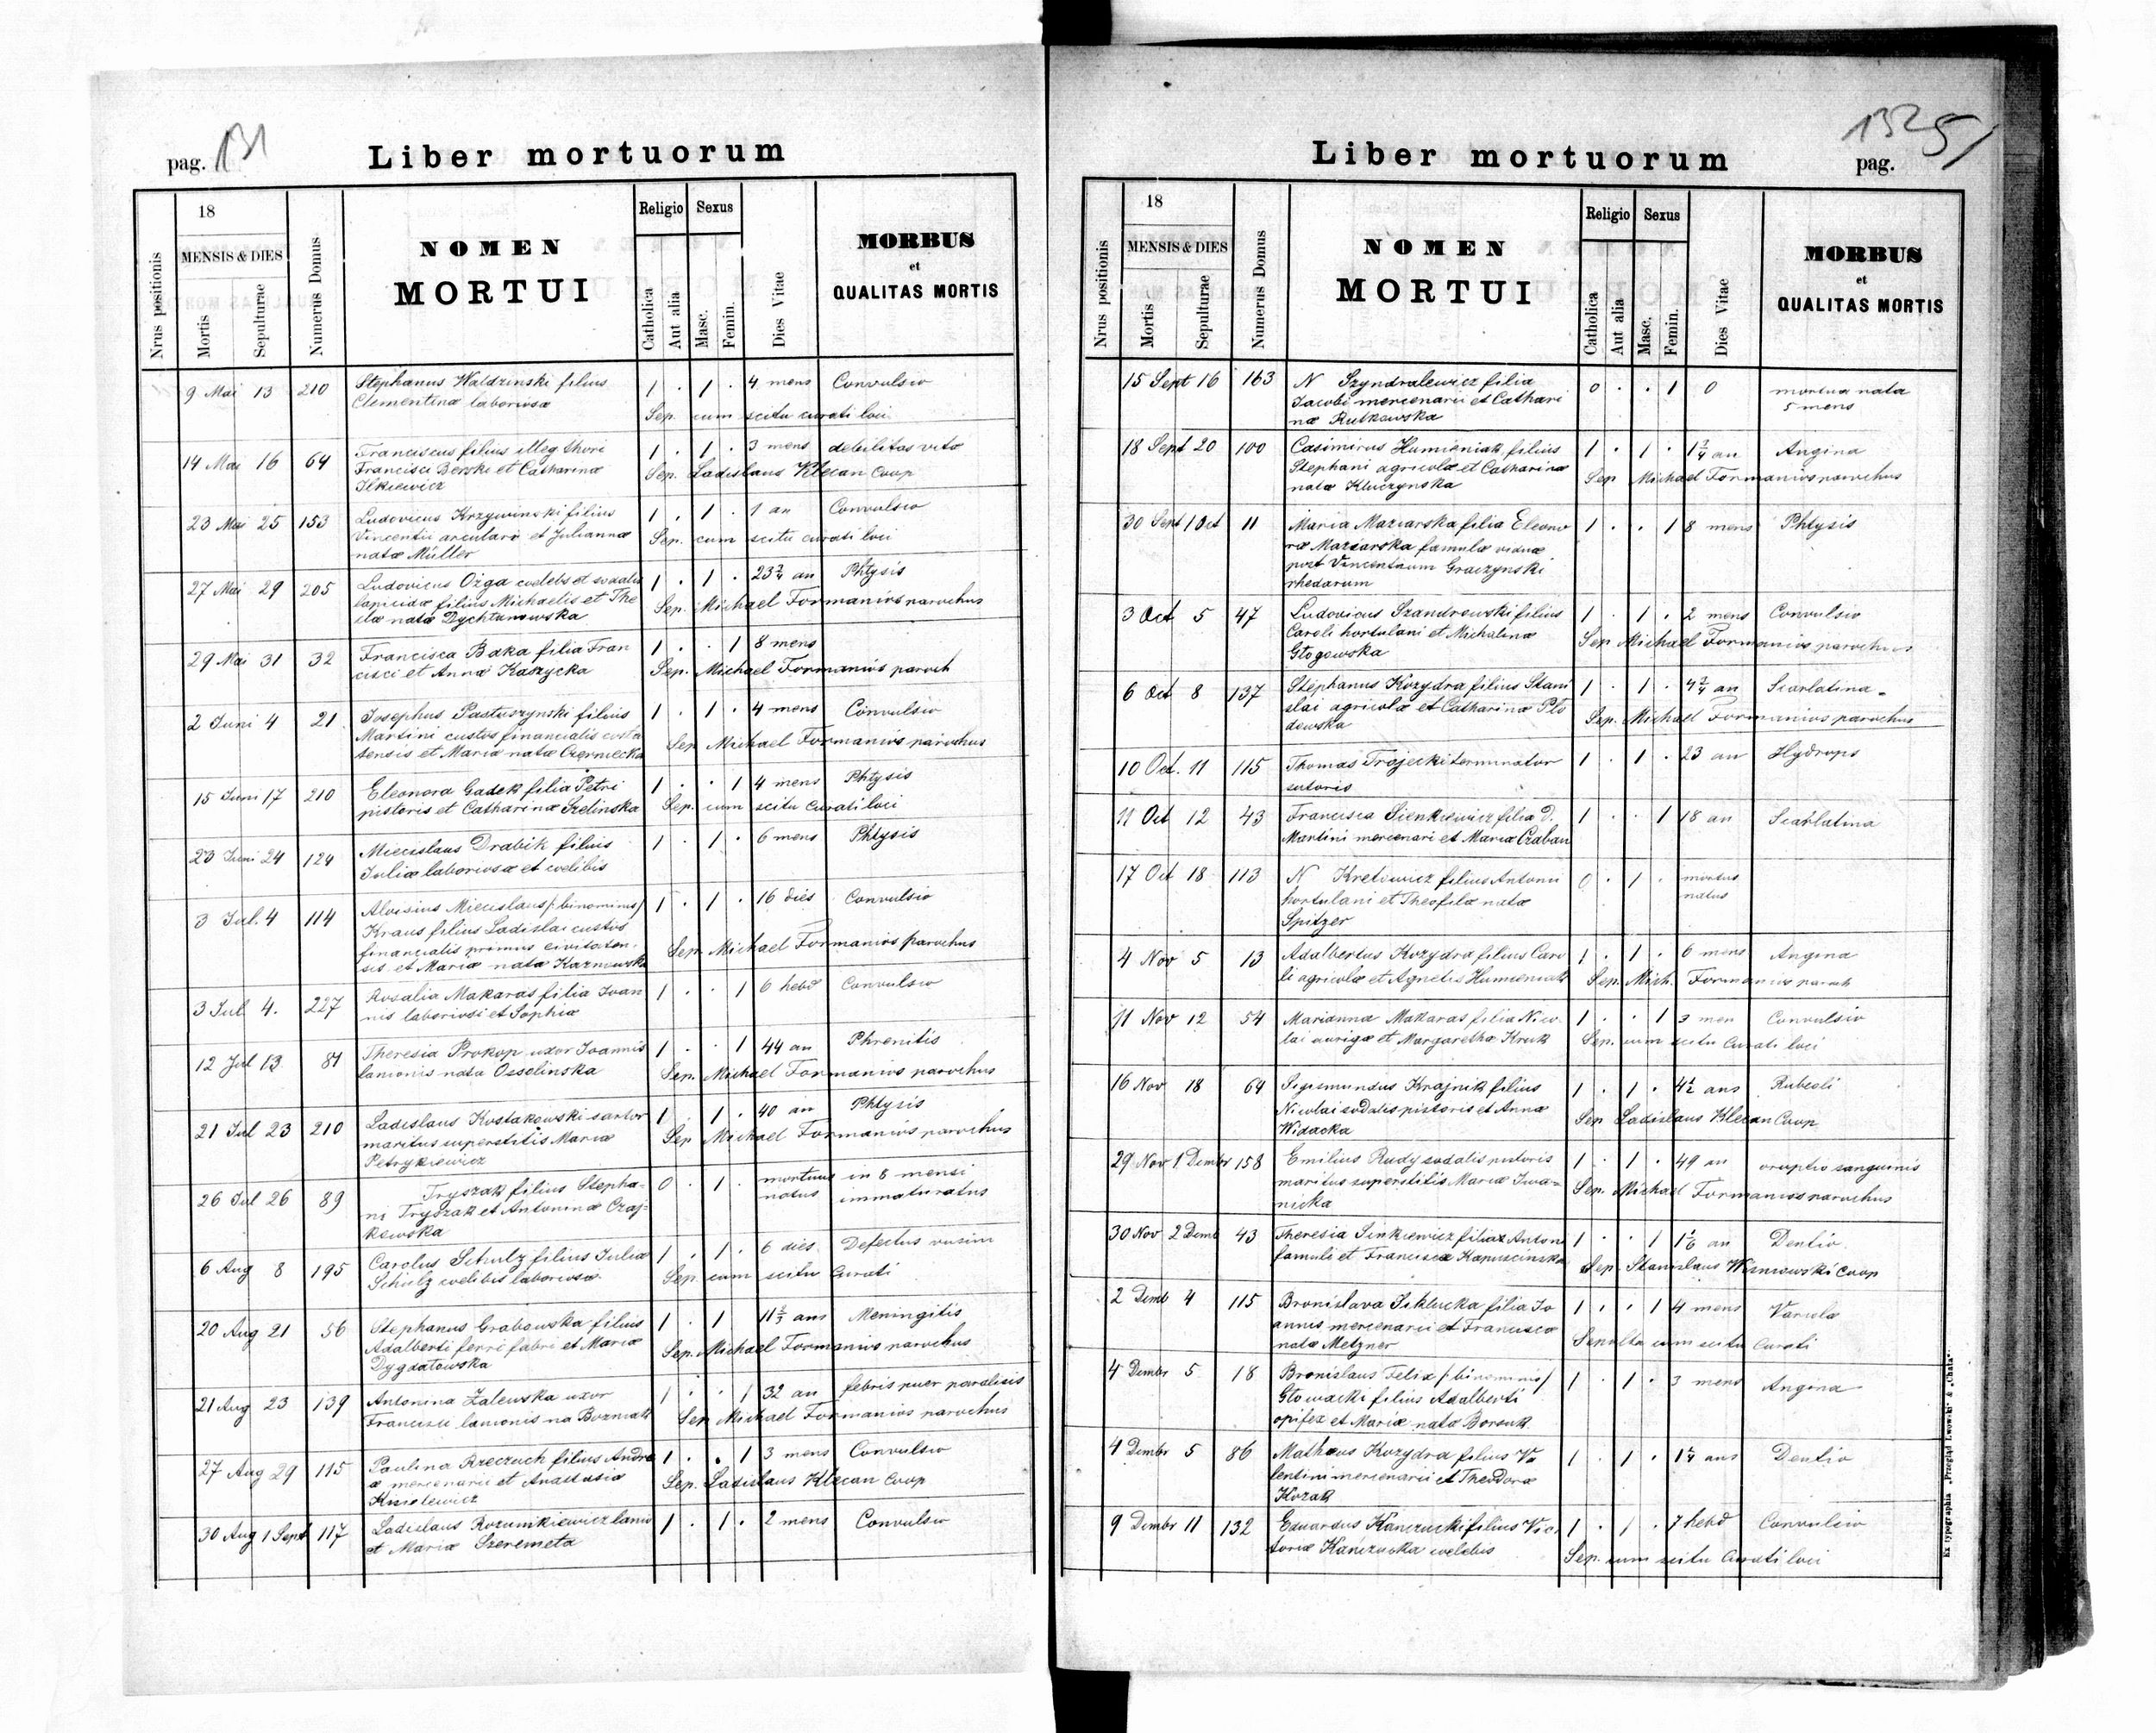 pag. 131
Liber mortuorum
Nrus positionis
18
MENSIS & DIES
Mortis
Sepulturae
Numerus Domus
NOMEN
MORTUI
Religio
Sexus
Catholica
Aut alia
Masc.
Femin.
Dies Vitae
MORBUS
et
QUALITAS MORTIS
9 Mai 13 210 Stephanus Waldzinski filius 1 . 1 . 4 mens Convulsio
Clementinæ laboriosæ
Sep. cum scitu curati loci
14 Mai 16 64 Franciscus filius illeg thori 1 . 1 . 3 mens debilitas vitæ
Francisci Berski et Catharinæ Sep. Ladislaus Klecan Coop
Ilkiewicz
23 Mai 25 153 Ludovicus Krzywinski filius 1 . 1 . 1 an Convulsio
Vincentii arculari et Juliannæ Sep. cum scitu curati loci
natæ Müller
27 Mai 29 205 Ludovicus Ożga coelebs et sodalis 1 . 1 . 23 2/4 an Phtysis
lapicidæ filius Michaelis et The Sep. Michael Formanios parochus
clæ natæ Dychtanowska
29 Mai 31 32 Francisca Baka filia Fran 1 . . 1 8 mens
cisci et Annæ Kaszycka Sep. Michael Formanios paroch
2 Juni 4 21 Josephus Pastuszynski filius 1 . 1 . 4 mens Convulsio
Martini custos financialis
tensis et Mariæ natæ Czerniecka Sep Michael Formanios parochus
15 Juni 17 210 Eleonora Gadek filia Petri 1 . . 1 4 mens Phtysis
pistoris et Catharinæ Szelinska Sep. cum scitu Curati loci
23 Juni 24 124 Miecislaus Drabik filius 1 . 1 . 6 mens Phtysis
Juliæ laboriosæ et coelibis
3 Jul. 4 114 Aloisius Miecislaus /: binominus/ 1 . 1 . 16 dies Convulsio
Kraus filius Ladislai custos
financialis primus civitaten.
sis et Mariæ natæ Sep Michael Formanios parochus
3 Jul 4. 227 Rosalia Makaras filia Joan 1 . . 1 6 hebd Convulsio
nis laboriosi et Sophiæ
12 Jul 13 81 Theresia Prokop uxor Joannis 1 . . 1 44 an Phrenitis
lanionis nata Ossolinska Sep. Michael Formanios parochus
21 Jul 23 210 Ladislaus Kostakowski sartor 1 . 1 . 40 an Phtysis
maritus superstitis Mariæ Sep Michael Formanios parochus
Petrykiewicz
26 Jul 26 89 Tryszak filius Stepha- 0 . 1 . mortuus in 8 mensi
ni Tryszak et Antoninæ Czaj- natus immaturatus
kowska
6 Aug 8 195 Carolus Schulz filius Juliæ 1 . 1 . 6 dies Defectus
Schulz coelibis laboriosæ Sep. cum scitu Curati
20 Aug 21 56 Stephanus Grabowska filius 1 . 1 ans Meningitis
Adalberti ferri fabri et Mariæ Sep. Michael Formanios parochus
Dygdatowska
21 Aug 23 139 Antonina Zalewska uxor 1 . . 1 32 an febris puer paralisis
Francisci lanionis na Sep Michael Formanios parochus
27 Aug 29 115 Paulina Rzeczuch filius Andre 1 . . 1 3 mens Convulsio
æ mercenarii et Anastasiæ Sep. Ladislaus Klecan Coop
30 Aug 1 Sept 117 Ladislaus Rozumkiewicz lanio 1 . 1 . 2 mens Convulsio
et Mariæ Szeremeta
1325/
Liber mortuorum
pag.
Nrus positionis
18
MENSIS & DIES
Mortis
Sepulturae
Numerus Domus
NOMEN
MORTUI
Religio
Sexus
Catholica
Aut alia
Masc.
Femin.
Dies Vitae
MORBUS
et
QUALITAS MORTIS
15 Sept 16 163 N Szyndralewicz filia 0 . . 1 0 mortua nata
Jacobi mercenarii et Cathari 5 mens
næ Rutkowska
18 Sept 20 100 Casimirus Humieniak filius 1 . 1 . 1 2/4 an Angina
Stephani agricolæ et Catharinæ Sep Michael Formanios parochus
natæ Kluczynska
30 Sept 1 Oct 11 Maria Maziarska filia Eleono 1 . . 1 8 mens Phtysis
ræ Maziarska famulæ viduæ
post Vincentium Graczynski
rhedarum
3 Oct 5 47 Ludovicus Szandrowski filius 1 . 1 . 2 mens Convulsio
Caroli hortulani et Michalinæ Sep Michael Formanios parochus
Głogowska
6 Oct 8 137 Stephanus Kozydra filius Stani 1 . 1 . 4 2/4 an Scarlatina
slai agricolæ et Catharinæ Plo Sep. Michael Formanios parochus
dowska
10 Oct. 11 115 Thomas Trojecki terminator 1 . 1 . 23 an Hydrops
sutoris
11 Oct 12 43 Francisca Sienkiewicz filia D. 1 . . 1 18 an Scarlatina
Martini mercenari et Mariæ Czaban
17 Oct 18 113 N Kretowicz filius Antoni 0 . 1 . mortus
hortulani et Theofilæ natæ natus
Spitzer
4 Nov 5 13 Adalbertus Kozydra filius Caro 1 . 1 . 6 mens Angina
li agricolæ et Agnetis Humieniak Sep. Mich. Formanios paroch
11 Nov 12 54 Marianna Makaras filia Nico 1 . . 1 3 men Convulsio
lai aurigæ et Margaretha Kruk Sep. cum scitu Curati loci
16 Nov 18 64 Sigismundus Krajnik filius 1 . 1 . 4 1/2 ans Rubeoli
Nicolai sodalis pistoris et Annæ Sep Ladislaus Klecan Coop
Widacka
29 Nov 1 Dembr 158 Emilius Rudy sodalis sutoris 1 . 1 . 49 an eruptio sanguinis
maritus superstitis Mariæ Iwa- Sep. Michael Formanios parochus
nicka
30 Nov 2 Demb 43 Theresia Sinkiewicz filia Anton 1 . . 1 1 1/6 an Dentio
famuli et Franciscæ Kapuscinska Sep. Stanislaus Wisniowski Coop
2 Demb 4 115 Bronislava Siklucka filia Jo 1 . . 1 4 mens Variola
annis mercenarii et Franciscæ
natæ Metzner Sepulta cum scitu Curati
4 Dembr 5 18 Bronislaus Felix /: binominis/ 1 . 1 . 3 mens Angina
Głowacki filius Adalberti
opifex et Mariæ natæ Borsuk
4 Dembr 5 86 Mathæus Kozydra filius Va 1 . 1 . 1 1/4 ans Dentio
lentini mercenarii et Theodoræ
Kozak
9 Dembr 11 132 Eduardus Kanczucki filius Vic 1 . 1 . 7 hebd Convulsio
toriæ Kanczucka coelebis Sep. cum scitu Curati loci
Ex typographia „Przegląd Lwowski“ & „Chata“.